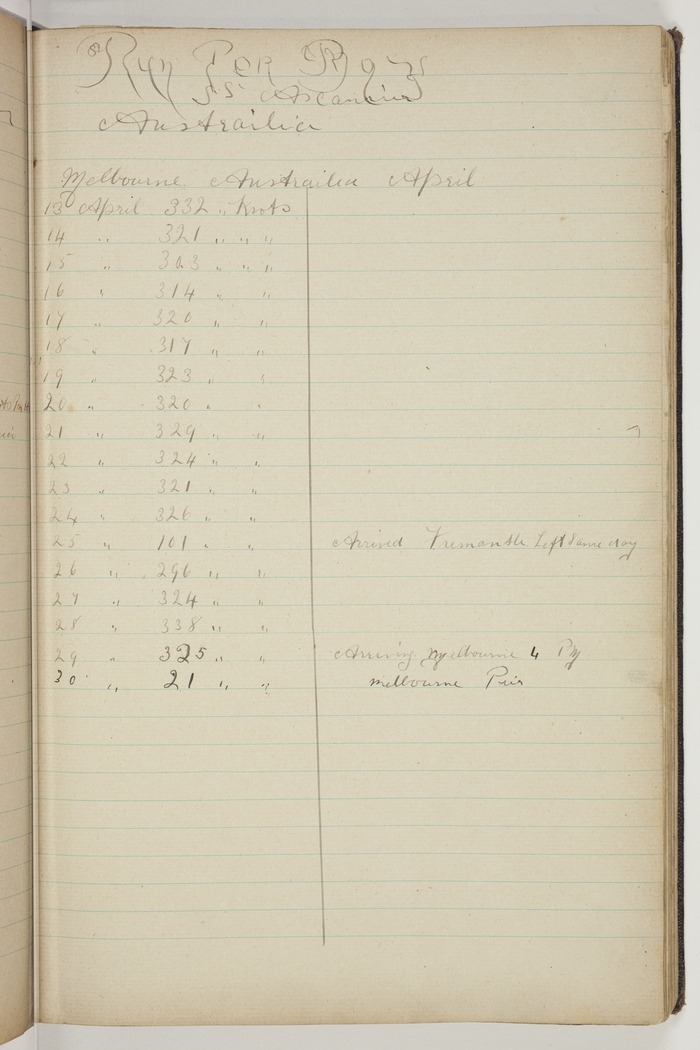 Run Per Days
SS Ascanius
Austrailia
Melbourne Austrailia April
13 April 332 " Knots
14 " 321 " " "
15 " 303 " " "
16 " 314 " "
17 " 320 " "
18 " 317 " "
19 " 323 " "
20 " 320 " "
21 " 329 " "
22 " 324 " "
23 " 321 " "
24 " 326 " "
25 " 101 " " Arrived Fremantle Left Same day
26 " 296 " "
27 " 324 " "
28 " 338 " "
29 " 325 " " Arriving Melbourne 4 PM
30 " 21 " " Melbourne Pier